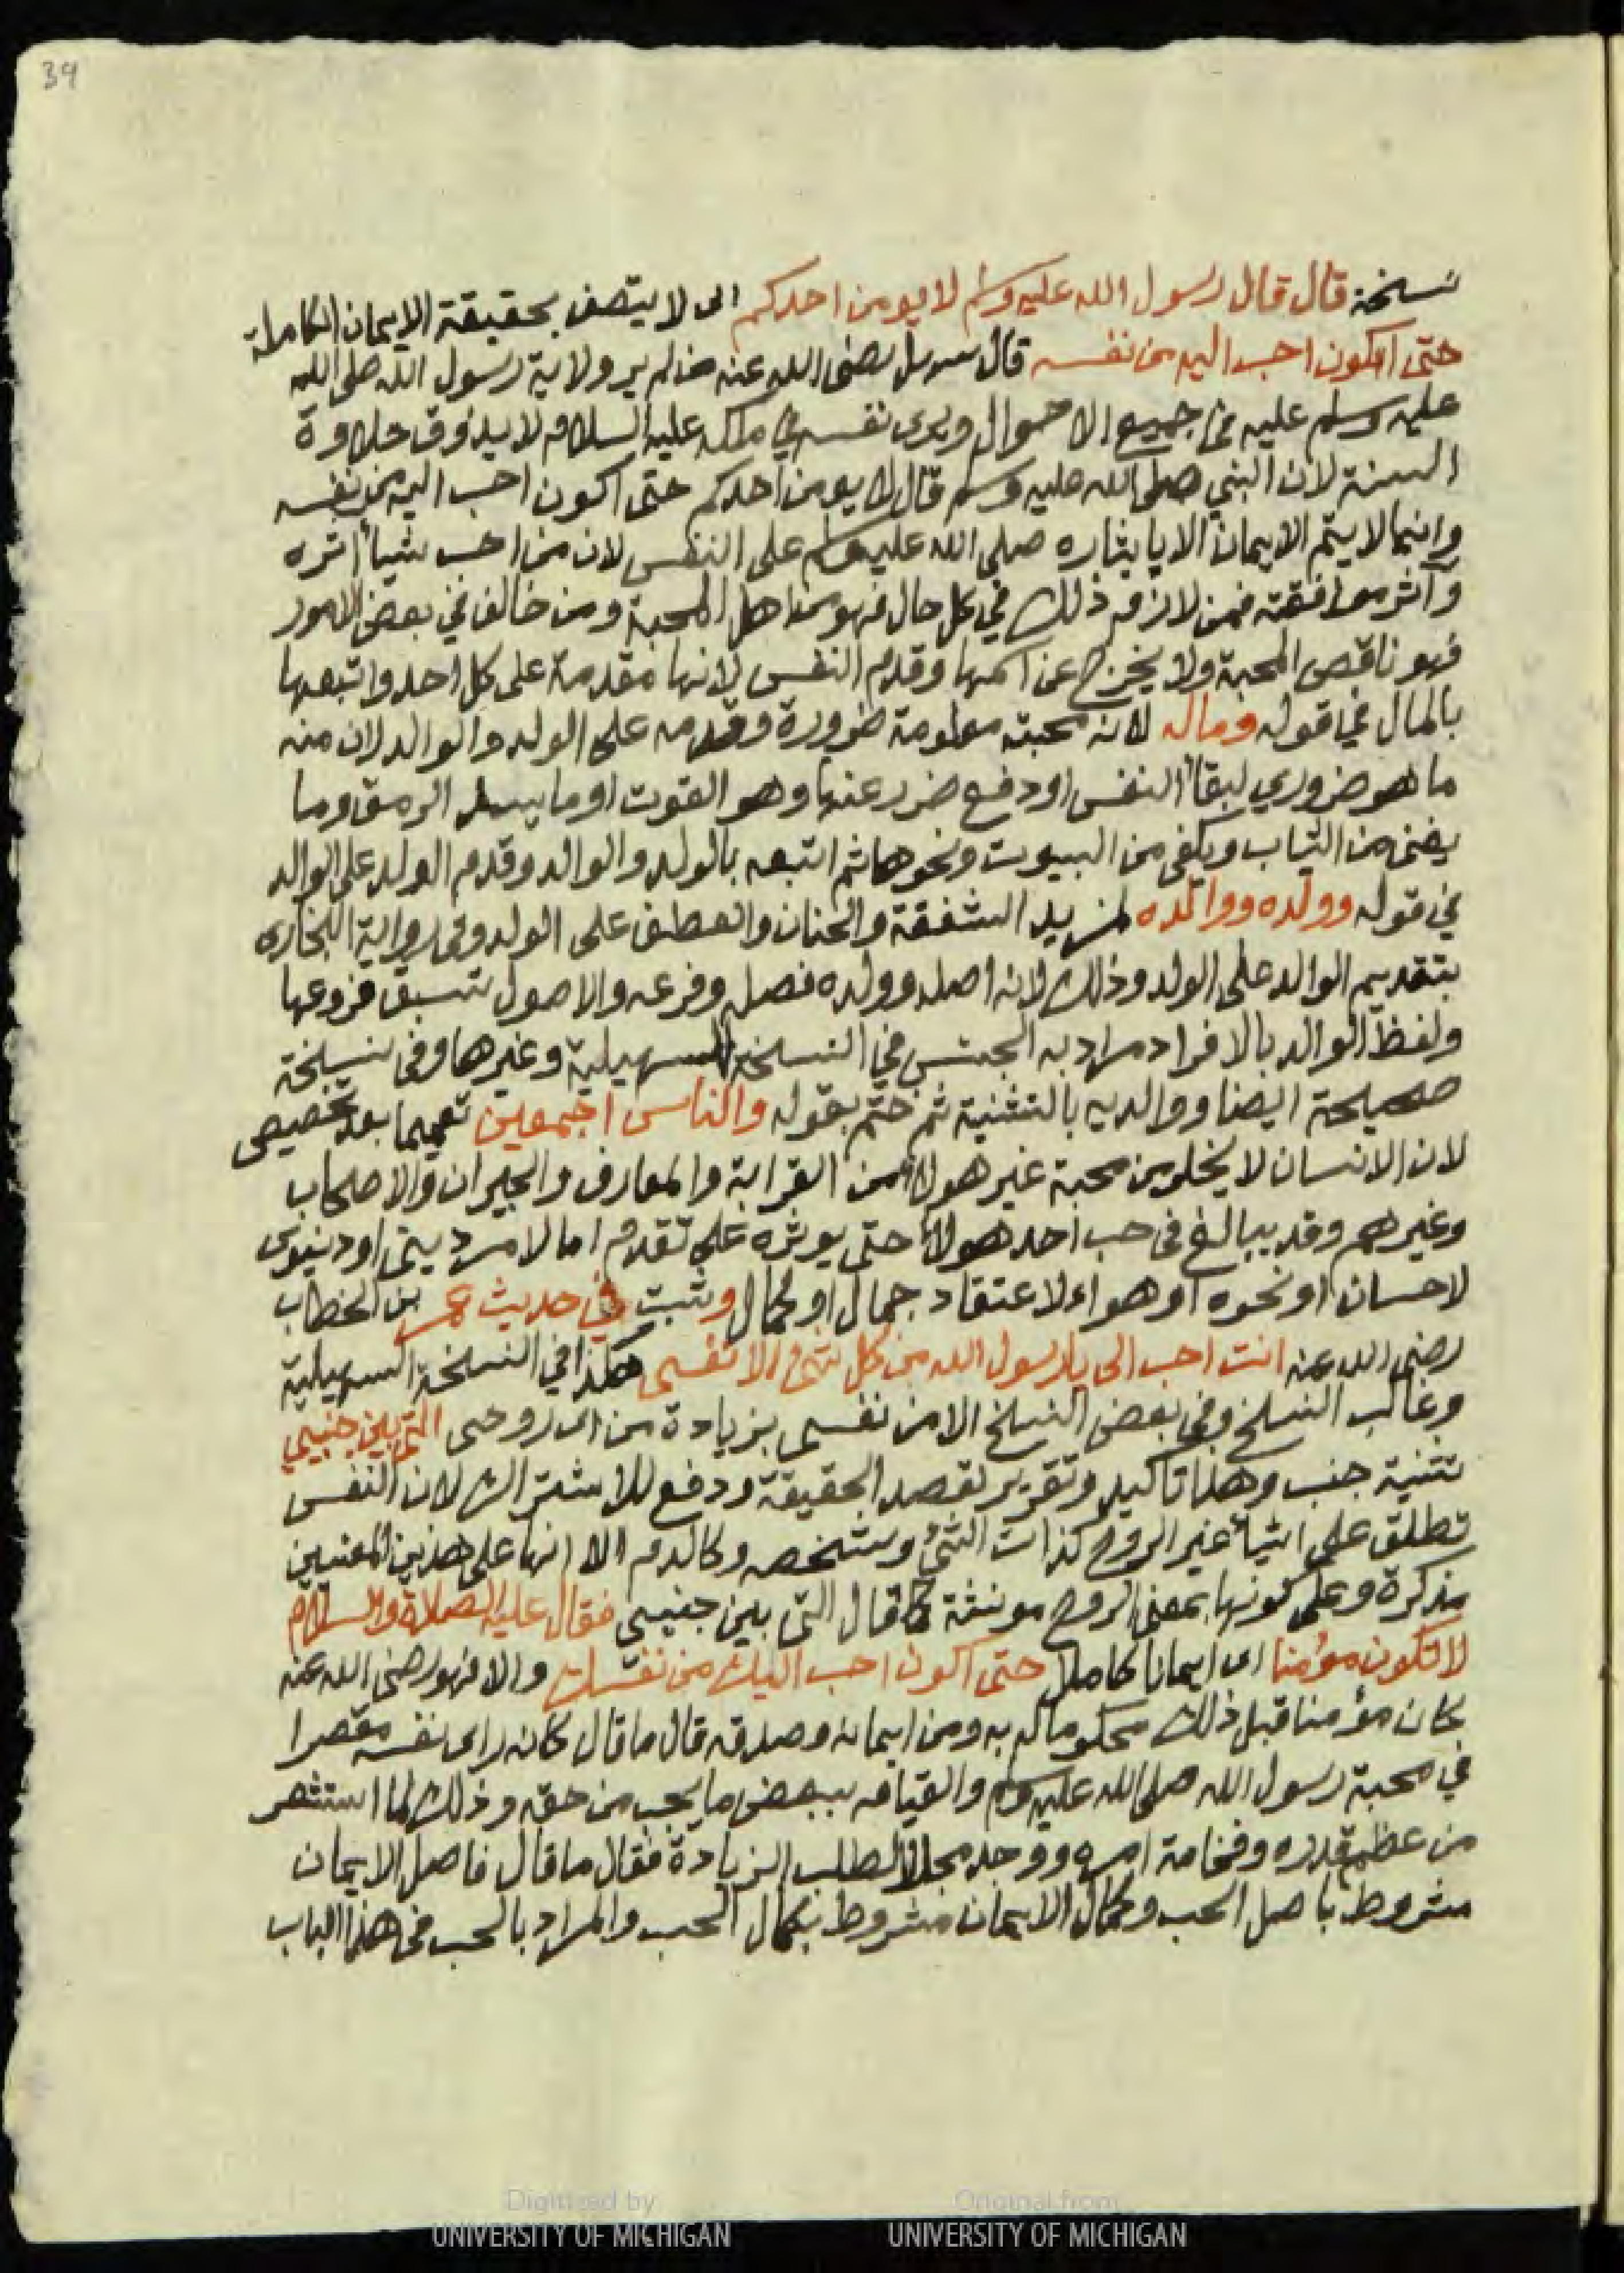 39
نسخة قال قال رسول الله عليه وسلم لا يومن احدكم اى لا يتصف بحقيقة الايمان الكاملة
حتى اكون احب اليه من نفسه قال سهل رضى الله عنه من لم ير ولاية رسول الله صلى الله
عليه وسلم عليه في جميع الاحوال ويرى نفسه في ملكه عليه السلام لا يذوق حلاوة
السنة لان النبي صلى الله عليه وسلم قال لا يومن احدكم حتى اكون احب اليه من نفسه
وانما لا يتم الايمان الا بايثاره صلى الله عليه وسلم على النفس لان من احب شيأ اثره
وآثر موافقته فمن لازم ذلك في كل حال فهو من اهل المحبة ومن خالف في بعض الامور
فهو ناقص المحبة ولا يخرج عن اسمها وقدم النفس لانها مقدمة على كل احد واتبعها
بالمال في قوله وماله لانه محبته معلومة ضرورة وقدمه على الولد والوالد لان منه
ما هو ضروري لبقأ النفس او دفع ضرر عنها وهو القوت او ما يسد الرمق وما
يضنى من الثياب ويكفى من البيوت ونحوها ثم اتبعه بالولد والوالد وقدم الولد على الوالد
في قوله وولده ووالده لمزيد الشفقة والحنان والعطف على الولد وفى رواية البخارى
بتقديم الوالد على الولد وذلك لانه اصله وولده فصله وفرعه والاصول تسبق فروعها
ولفظ الوالد بالافراد مراد به الجنس في النسخة السهيلية وغيرها وفى نسخة
صحيحة ايضا ووالديه بالتثنية ثم ختم بقوله والناس اجمعين تعميما بعد تخصيص
لان الانسان لا يخلو من محبة غير هولاء من القرابة والمعارف والجيران والاصحاب
وغيرهم وقد يبالغ فى حب احد هولاء حتى يوثره على تقدم اما لامر دينى او دنيوى
لاحسان او نحوه او هواء لاعتقاد جمال او كمال وثبت في حديث عمر بن الخطاب
رضى الله عنه انت احب الى يا رسول الله من كل شئ الا نفسى هكذا في النسخة السهيلية
وغالب النسخ وفى بعض النسخ الا من نفسى بزيادة من اى روحى التى بين جنبيي
تثنية جنب وهذا تاكيد وتقرير لقصد الحقيقة ودفع للاشتراك لان النفس
تطلق على اشيأ غير الروح كذات الشئ وشخصه وكالدم الا انها على هذين المعنيين
مذكرة وعلى كونها بمعنى الروح مونثة كما قال التى بين جنبيى فقال عليه الصلاة والسلام
لا تكون مؤمنا اى ايمانا كاملا حتى اكون احب اليك من نفسك والا فهو رضى الله عنه
كان مؤمنا قبل ذلك محكوما له به ومن ايمانه وصدقه قال ما قال كانه راى نفسه مقصرا
في محبة رسول الله صلى الله عليه وسلم والقيام ببعض ما يجب من حقه وذلك لما استشعر
من عظم قدره وفخامة امره ووجد محلا لطلب الزيادة فقال ما قال فاصل الايمان
مشروط باصل الحب وكمال الايمان مشروط بكمال الحب والمراد بالحب في هذا الباب
Digitized by
UNIVERSITY OF MICHIGAN
Original from
UNIVERSITY OF MICHIGAN